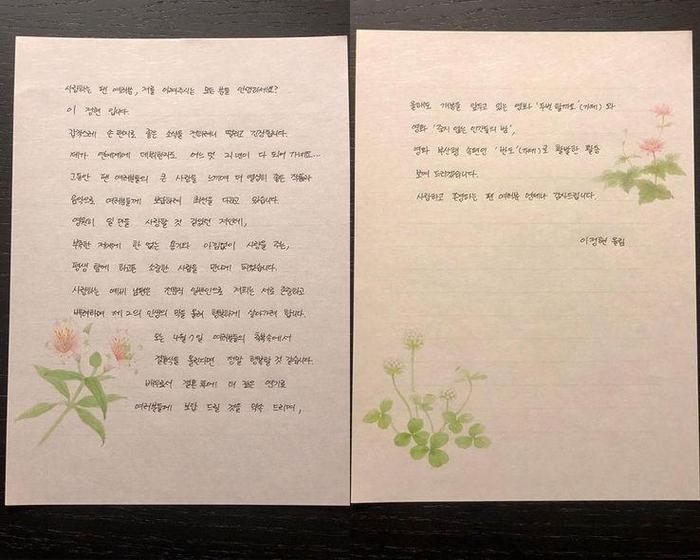 사랑하는 팬 여러분, 저를 아껴주시는 모든 분들 안녕하세요?
이정현 입니다.
갑작스레 손편지로 좋은 소식을 전하려니 떨리고 긴장됩니다.
제가 연예계에 데뷔한지도 어느 덧 21년이 다 되어 가네요...
그동안 팬 여러분들의 큰 사랑을 느끼며 더 열심히 좋은 작품과
음악으로 여러분들께 보답하려 최선을 다하고 있습니다.
영원히 일 만을 사랑할 것 같았던 저인데,
부족한 저에게 한 없는 용기와 아낌없이 사랑을 주는,
평생 함께 하고픈 소중한 사람을 만나게 되었습니다.
사랑하는 예비 남편은 전문직 일반인으로 저희는 서로 존중하고
배려하며 제 2의 인생의 막을 올려 행복하게 살아가려 합니다.
오는 4월 7일 여러분들의 축복속에서
결혼식을 올린다면 정말 행복할 것 같습니다.
배우로서 결혼 후에 더 깊은 연기로
여러분들께 보답 드릴 것을 약속 드리며,
올해도 개봉을 앞두고 있는 영화 '두번 할까요' (가제) 와
영화 '죽지 않는 인간들의 밤',
영화 부산행 속편인 '반도' (가제)로 활발한 활동
보여 드리겠습니다.
사랑하고 존경하는 팬 여러분 언제나 감사드립니다.
이정현 올림